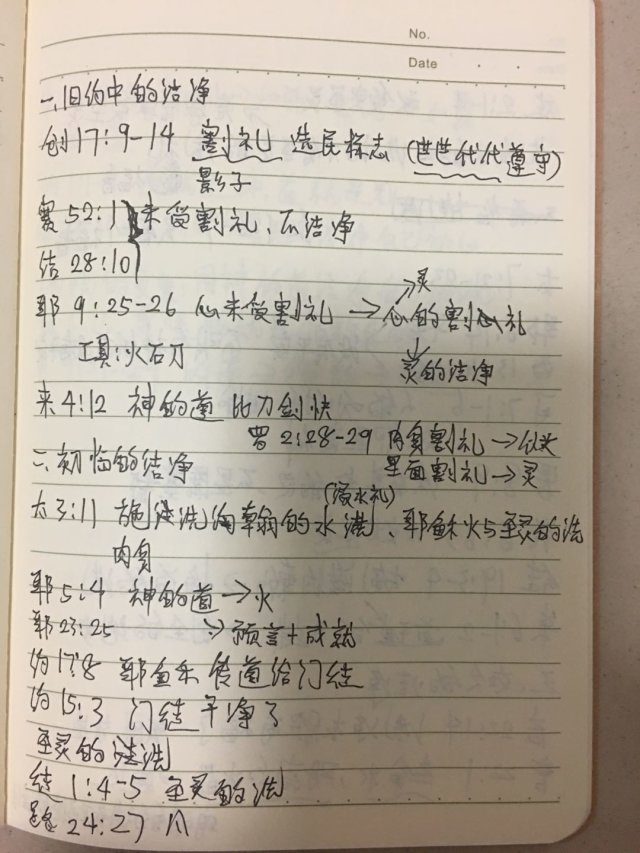 No.
Date
一、旧约中的洁净
创17:9-14 割礼 选民标志 (世世代代遵守)
影子
赛52:1 未受割礼、不洁净
结28:10
灵
耶9:25-26 心未受割礼 → 心的割礼
工具:火石刀 灵的洁净
来4:12 神的道 比刀剑快
罗2:28-29 肉身割礼 →
二、初临的洁净 里面割礼 → 灵
(浸水礼)
太3:11 施洗约翰的水洗、耶稣火与圣灵的洗
肉身
耶5:14 神的道 → 火
耶23:25 → 预言+成就
约17:8 耶稣 传道给门徒
约15:3 门徒 干净了
圣灵的洗
徒1:4-5 圣灵的洗
路24:27